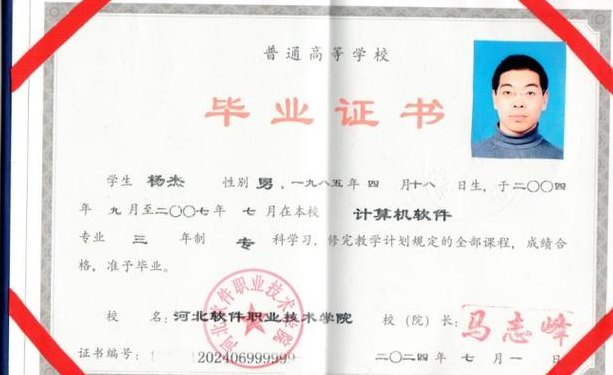 普通高等学校
毕业证书
学生 杨杰 性别 男，一九八五年 四 月十八 日生，于二〇〇四
年 九 月至二〇〇七年 七 月在本校 计算机软件
专业 三 年制 专 科学习，修完教学计划规定的全部课程，成绩合
格，准予毕业。
校 名：河北软件职业技术学院 校（院）长：马志峰
河北软件职业技术学院
证书编号： 202406999999 二〇二四年 七 月 一 日